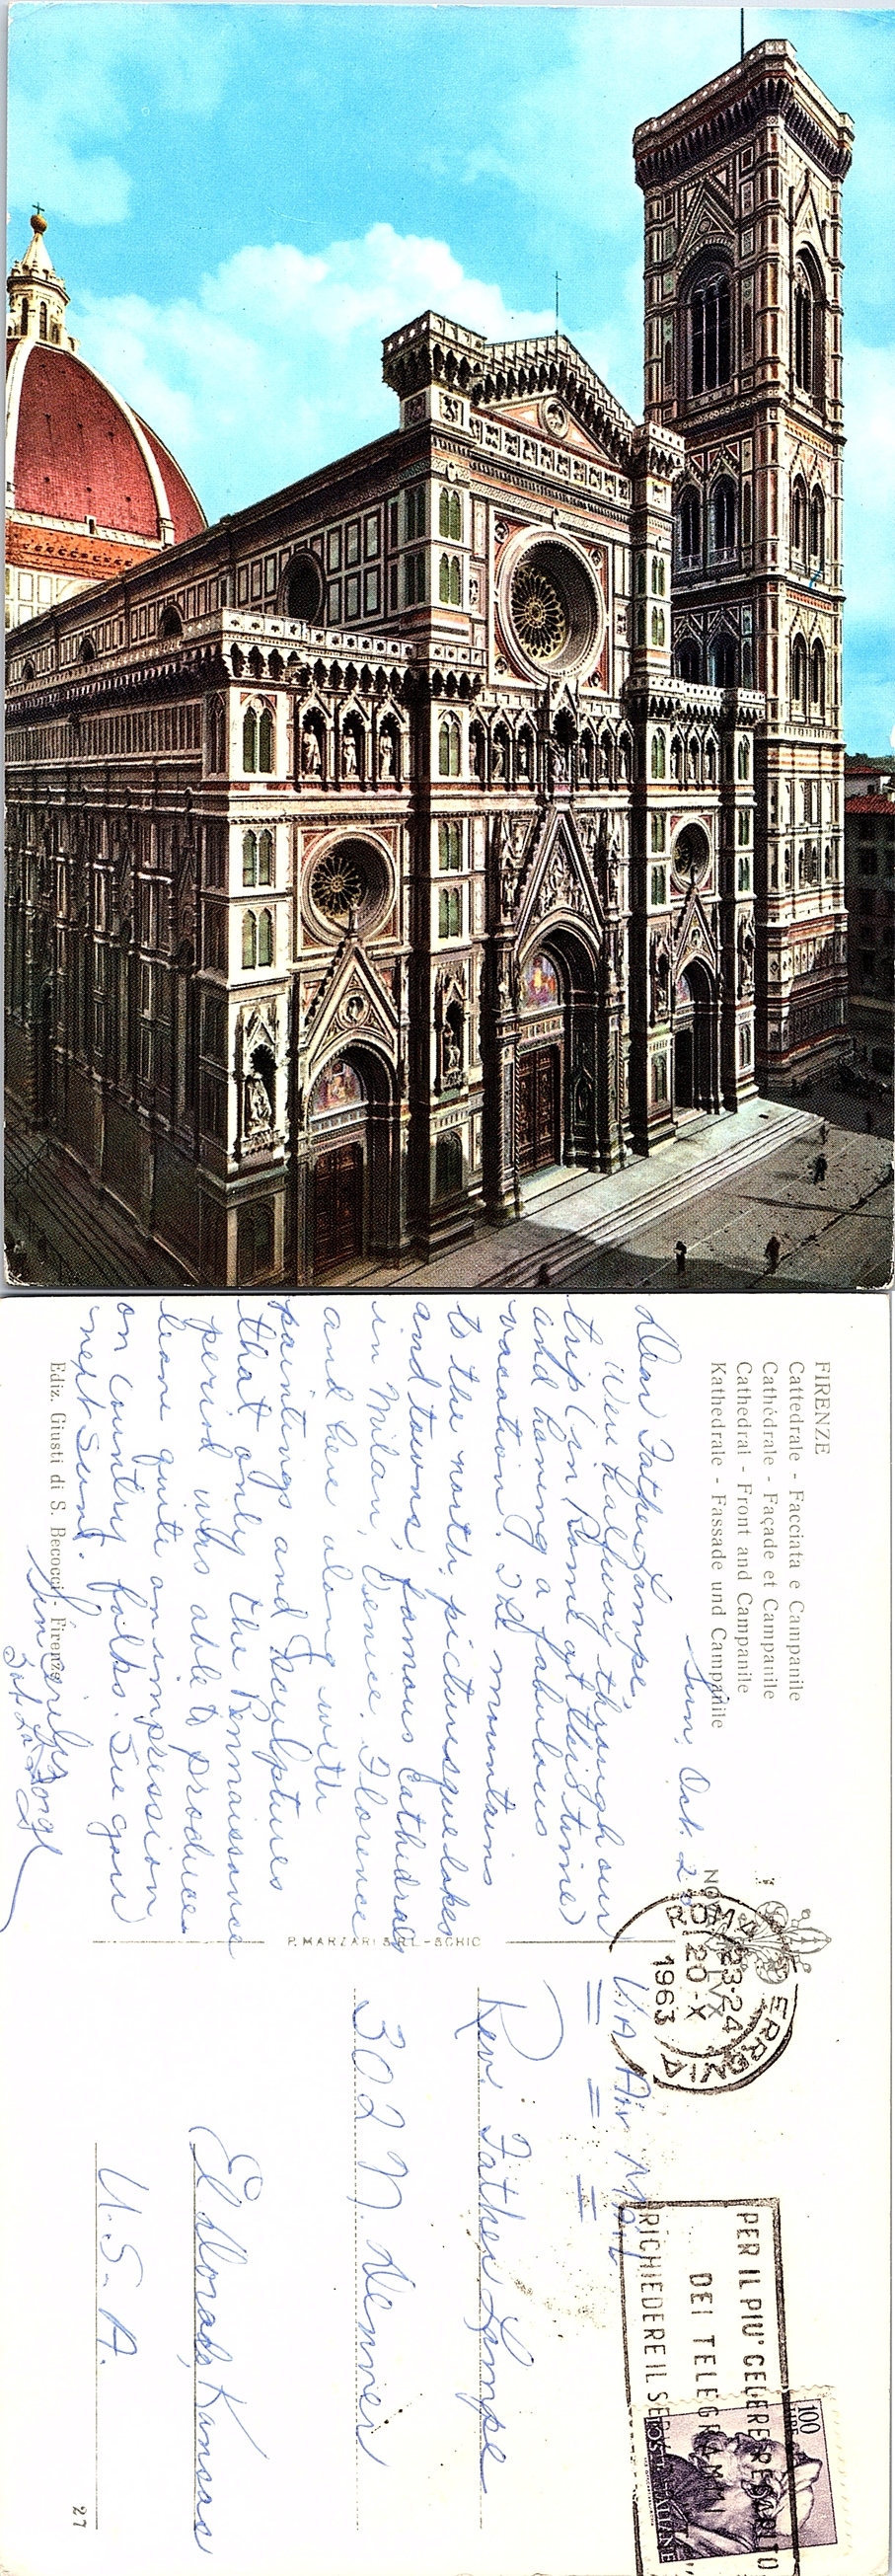 FIRENZE
Cattedrale - Facciata e Campanile
Cathédrale - Façade et Campanile
Cathedral - Front and Campanile
Kathedrale - Fassade und Campanile
Sun, Oct. 20
Dear Father Lampe,
We're halfway through our
trip (in Rome at this time)
and having a fabulous
vacation. The mountains
to the north, picturesque lakes
and towns, famous Cathedrals
in Milan, Venice, Florence
and here along with
paintings and sculptures
that only the Rennaissance
period was able to produce
leave quite an impression
on country folks. See you
next Sun.
Ediz. Giusti di S. Becocci - Firenze
P. MARZARI S.R.L. - SCHIO
ROMA FERROVIA
23-24
20-X
1963
PER IL PIU' CELERE RECAPITO
DEI TELEGRAMMI
RICHIEDERE IL SE
100
LIRE
POSTE ITALIANE
VIA AIR MAIL
Rev. Father Lampe
302 N. Denver
El Dorado, Kansas
U.S.A.
27